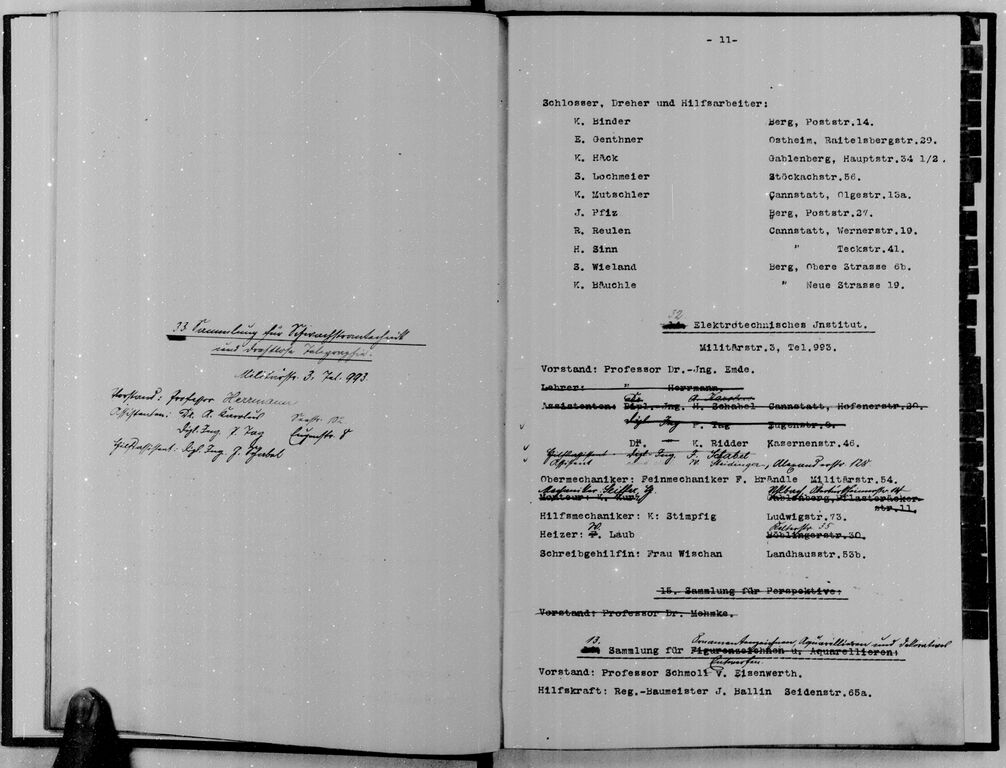 33 Sammlung für Schwachstromtechnik
und drahtlose Telegraphie.
Militärstr. 3, Tel. 993.
Vorstand: Professor Herrmann
Assistenten: Dr. A. Karolus
Dipl. Ing. P. Tag Eugenstr. 8
Hilfsassistent: Dipl. Ing. G. Schabel
- 11-
Schlosser, Dreher und Hilfsarbeiter:
K. Binder Berg, Poststr.14.
E. Genthner Ostheim, Raitelsbergstr.29.
K. Häck Gablenberg, Hauptstr.34 1/2.
S. Lochmeier Stöckachstr.56.
K. Mutschler Cannstatt, Olgastr.13a.
J. Pfiz Berg, Poststr.27.
R. Reulen Cannstatt, Wernerstr.19.
H. Sinn " Teckstr.41.
S. Wieland Berg, Obere Strasse 6b.
K. Bäuchle " Neue Strasse 19.
32
Elektrotechnisches Jnstitut.
Militärstr.3, Tel.993.
Vorstand: Professor Dr.-Jng. Emde.
Lehrer: " Herrmann.
Dr. A. Karolus
Assistenten: Dipl.-Jng. H. Schabel Cannstatt, Hofenerstr.20.
Dipl. Ing P. Tag Eugenstr.8.
Dr. K. Ridder Kasernenstr.46.
Hilfsassistent Dipl. Ing. G. Schabel
Assistent W. Neidinger, Alexanderstr 128
Obermechaniker: Feinmechaniker F. Brändle Militärstr.54.
Mechaniker
Monteur: Gablenberg, Pflasteräcker-
str.11.
Hilfsmechaniker: K. Stimpfig Ludwigstr.73.
Heizer: W. Laub Böblingerstr.30.
Schreibgehilfin: Frau Wischan Landhausstr.53b.
15. Sammlung für Perspektive:
Vorstand: Professor Dr. Mehmke.
13. Ornamentenzeichnen, Aquarellieren und dekoratives
Sammlung für Figurenzeichnen u. Aquarellieren:
Entwerfen
Vorstand: Professor Schmoll v. Eisenwerth.
Hilfskraft: Reg.-Baumeister J. Ballin Seidenstr.65a.